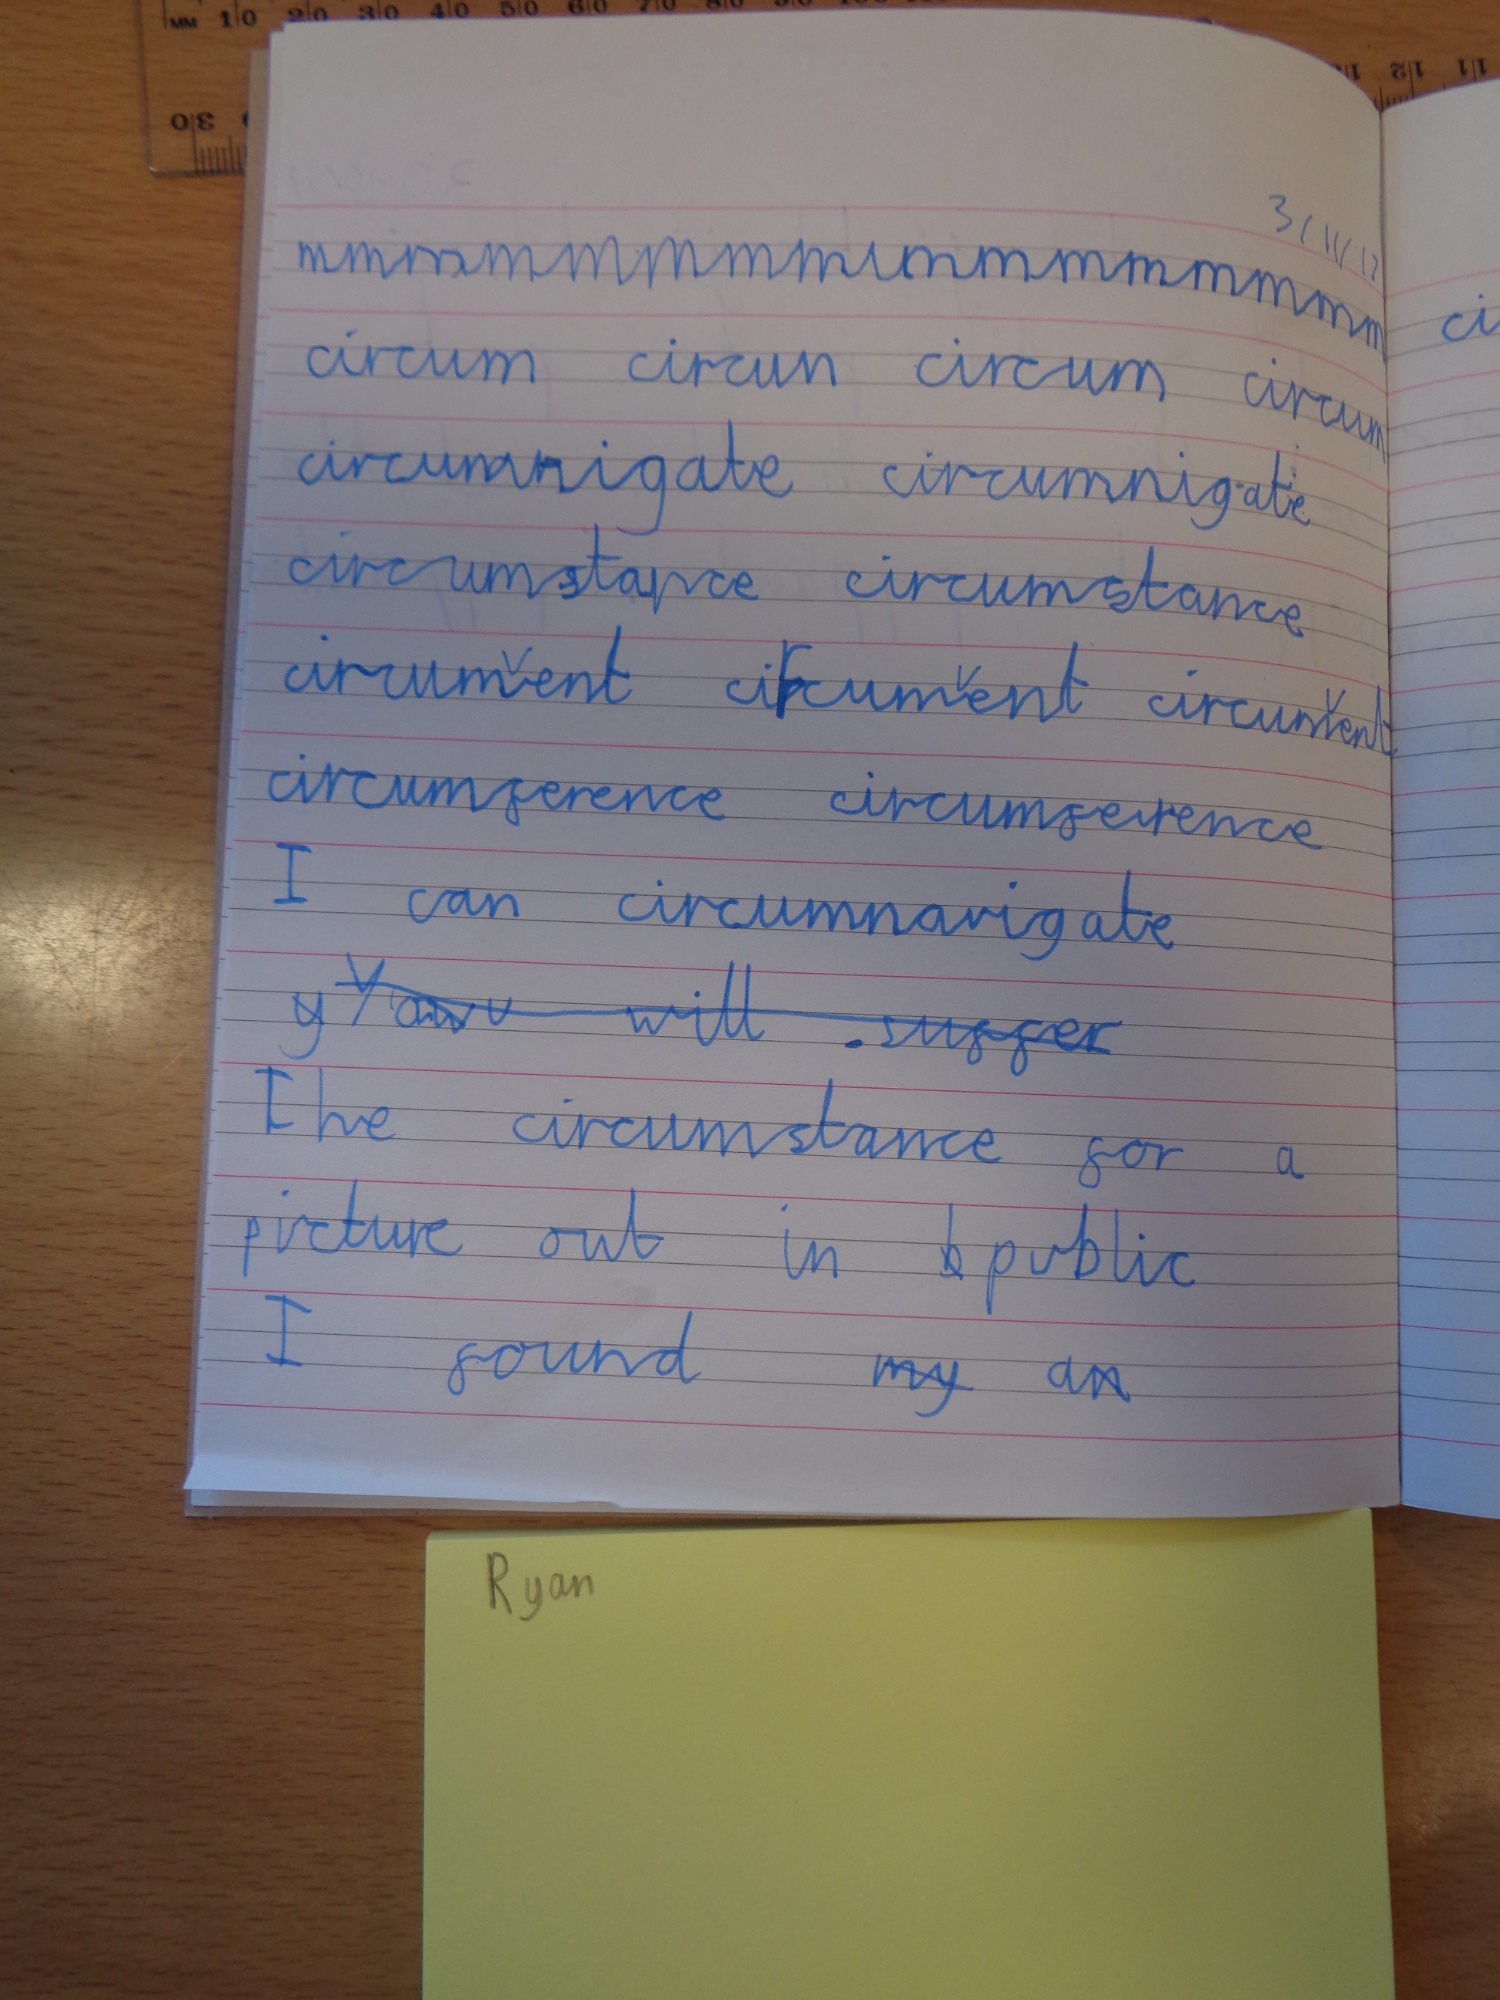 MM 10 20 30 40 50 60 70 80 90 100
30
12 11
3/11/17
mmmmmmmmmmmmmmmmmm
circum circun circum circum
ci
circumnigate circumnigate
circumstance circumstance
circumvent circumvent circumvent
circumference circumference
I can circumnavigate
y You will suffer
The circumstance for a
picture out in b public
I found my an
Ryan